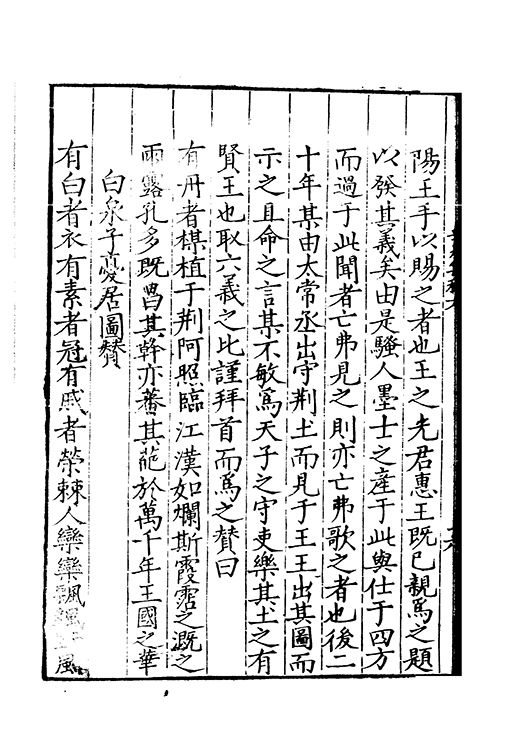 陽王手以賜之者也王之先君惠王既已親爲之題
以發其義矣由是騷人墨士之産于此與仕于四方
而過于此聞者亡弗見之則亦亡弗歌之者也後二
十年某由太常丞出守荆土而見于王王出其圖而
示之且命之言某不敏爲天子之守吏樂其土之有
賢王也取六義之比謹拜首而爲之賛曰
有丹者椹植于荆阿照臨江漢如爛斯霞霑之溉之
雨露孔多既昌其幹亦蕃其葩於萬千年王國之華
白泉子憂居圖賛
有白者衣有素者冠有戚者榮棘人欒欒飄風